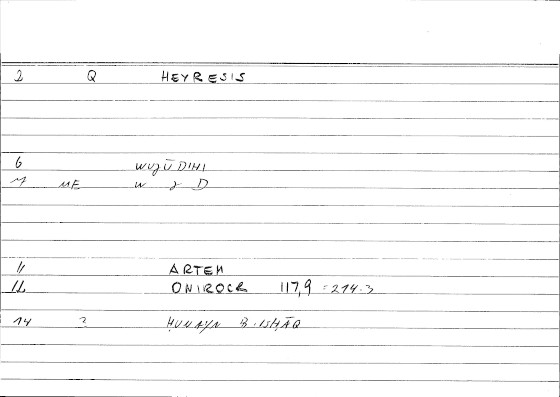 2 Q HEYRESIS
6 WUǦŪDIHI
7 ME W Ǧ D
11 ARTEM
12 ONIROCR 117,9 = 214.3
14 2 ḤUNAYN B. ISḤĀQ